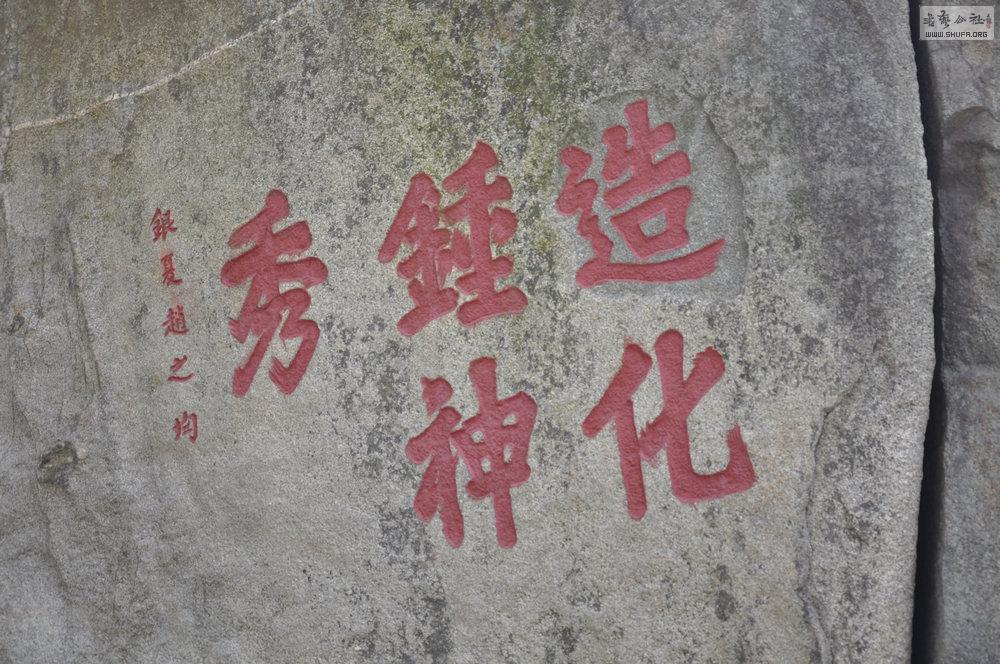 造化
鍾神
秀
銀夏趙之均
WWW.SHUFA.ORG